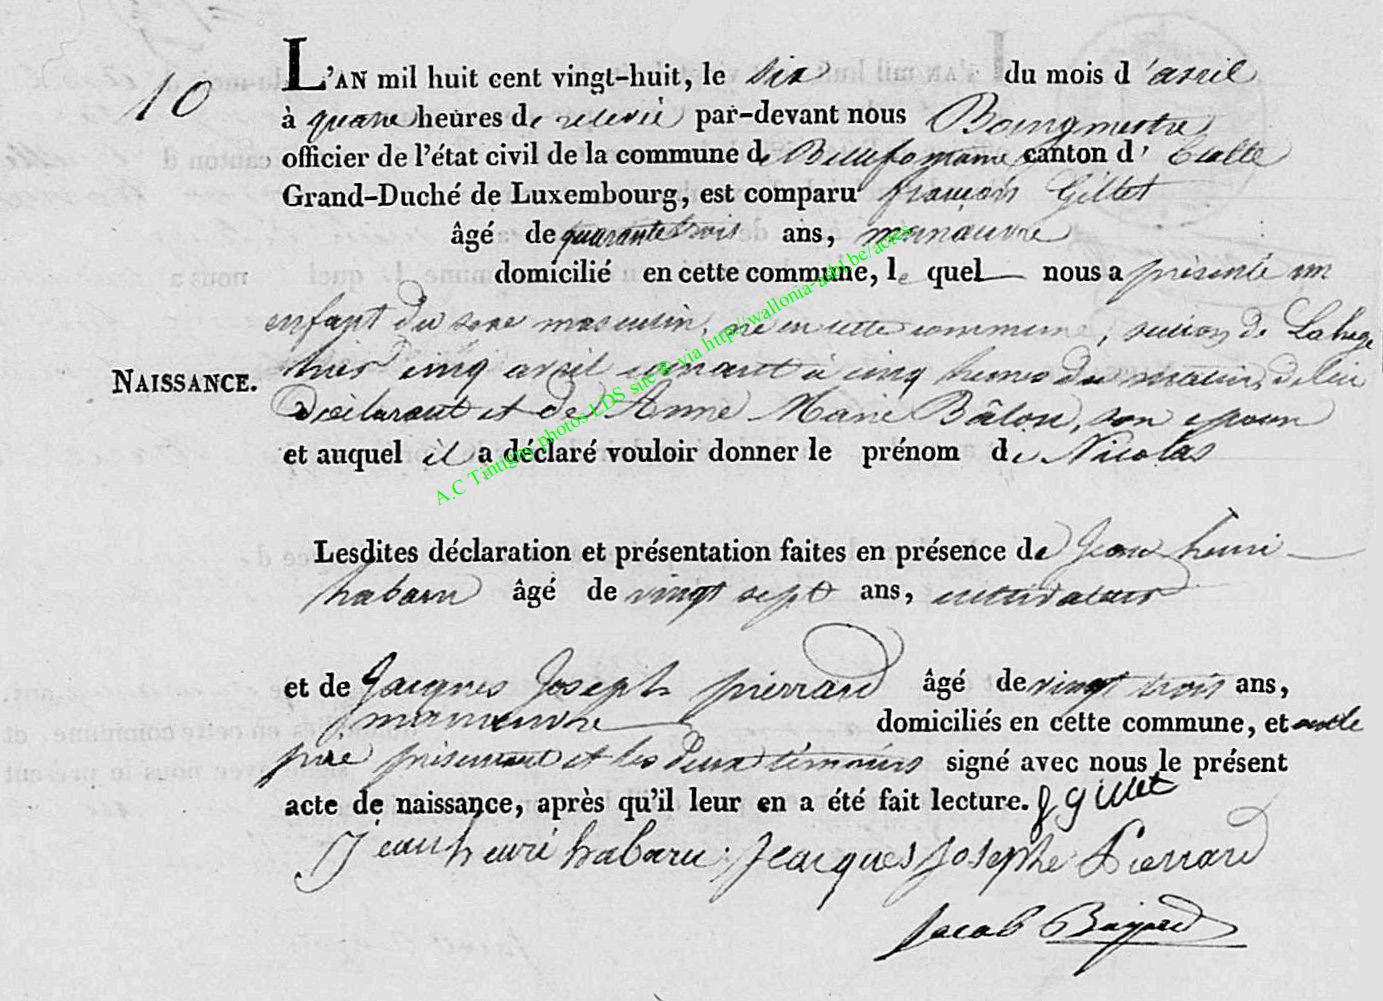 10
L'AN mil huit cent vingt-huit, le six du mois d'avril
à quatre heures de relevée par-devant nous Bourgmestre
officier de l'état civil de la commune de Bellefontaine canton d' Etalle
Grand-Duché de Luxembourg, est comparu françois Gillet
âgé de quarante trois ans, manœuvre
domicilié en cette commune, le quel nous a présenté un
enfant du sexe masculin, né en cette commune, section de Lahage
NAISSANCE.
hier cinq avril courant à cinq heures du matin, de lui
Déclarant et de Anne Marie Bâlon, son epouse
et auquel il a déclaré vouloir donner le prénom de Nicolas
Lesdites déclaration et présentation faites en présence de Jean henri
habaru âgé de vingt sept ans, cultivateur
et de Jacques Joseph pierrard âgé de vingt trois ans,
manœuvre domiciliés en cette commune, et ont le
père présentant et les deux témoins signé avec nous le présent
acte de naissance, après qu'il leur en a été fait lecture. f gillet
Jean henri habaru Jacques Josephe Pierrard
Jacob Bayard
A.C Tintigny photos LDS sire © via http://wallonia-asbl.be/actes